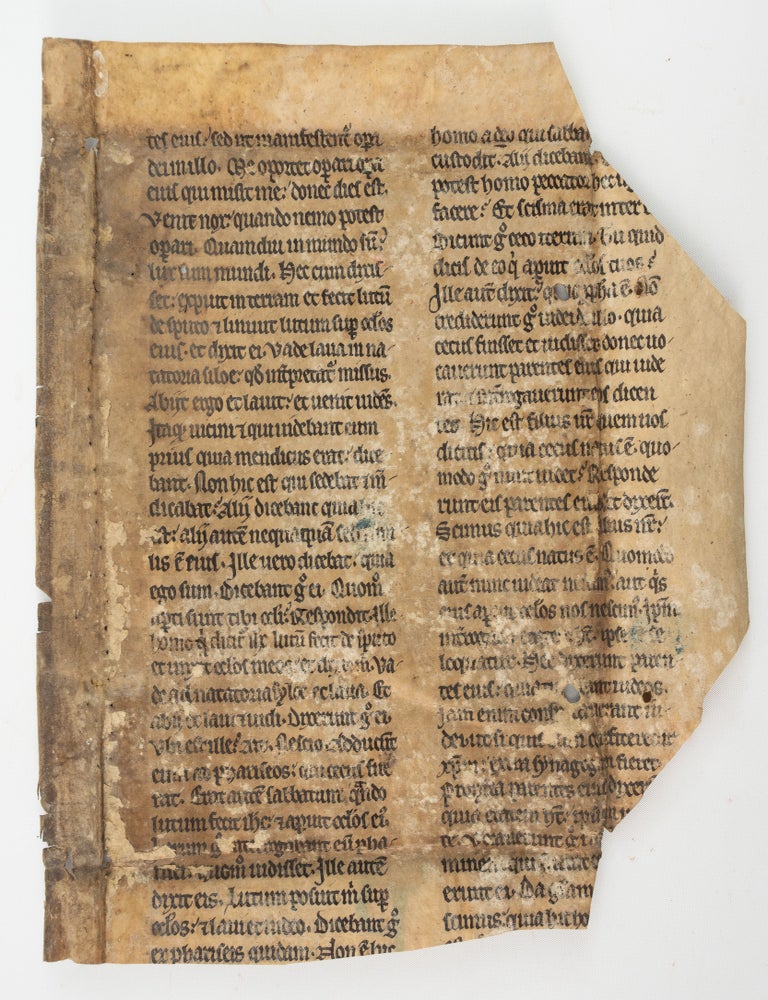 tes eius. sed ut manifestent᷑ oꝑa
dei in illo. Me oportet oꝑari oꝑa
eius qui misit me. donec dies est.
Venit nox. quando nemo potest
oꝑari. Quamdiu in mundo sū.
lux sum mundi. Hec cum dixis
set. expuit in terram et fecit lutū
de sputo ⁊ liniuit lutum suꝑ oc̄los
eius. et dixit ei. Vade laua in na
tatoria siloe. qđ inťpretat᷑ missus.
Abijt ergo et lauit. et uenit uidēs.
Itaqꝫ uicini ⁊ qui uidebant eum
prius quia mendicus erat. dice
bant. Non hic est qui sedebat ⁊ m̄
dicabat. Alij dicebant quia hic
Alij autē nequaquam
lis ē eius. Ille vero dicebat. quia
ego sum. Dicebant gͦ ei. Quom̊
aꝑti sunt tibi oc̄li. Respondit. Ille
homo q̇ dicit᷑ ih̄c lutū fecit de sputo
et oc̄los meos. et dixit m̄. Va
de ad natatoria syloe et laua. Et
abii et laui ⁊ uidi. Dixerunt gͦ ei.
Vbi est ille. Ait. Nescio. Adducūt
eum ad phariseos. qui cecus fue
rat. Erat autē sabbatum. q̄ndo
lutum fecit ih̄c. ⁊ aꝑuit oc̄los eī.
gͦ eū pha
risei. quom̊ uidisset. Ille autē
dixit eis. Lutum posuit m̄ suꝑ
oc̄los. ⁊ laui et uideo. Dicebant gͦ
ex phariseis quidam. Non ē hic
homo a deo qui sabba
custodit. Alij dicebant
potest homo peccator hec
facere. Et scisma erat inter
Dicunt gͦ ceco iterum. Tu quid
dicis de eo q̇ aꝑuit oc̄los tuos.
Ille autē dixit. quia ꝓpha ē. Nō
crediderunt gͦ iudei de illo. quia
cecus fuisset et uidisset. donec uo
cauerunt parentes eius qui uide
rat. ⁊ interrogauerunt eos dicen
tes. Hic est filius ur̄ quem uos
dicitis. quia cecus natus ē. quo
modo gͦ nunc uidet. Responde
runt eis parentes eius et dixert̄.
Scimus quia hic est filius nr̄.
et quia cecus natus ē. Quomodo
autē nunc uideat nescim᷒. aut q̇s
eius aꝑuit oc̄los nos nescim᷒. Ip̄m
interrogate ipse de se
loquatur. Hec dixerunt paren
tes eius. quia timebant iudeos.
Iam enim conspirauerant iu
dei ut si quis eum confiteretur
xp̄m. extra synagogam fieret.
Propterea parentes eius dixerūt
quia etatem ip̄m
te. Vocauerunt gͦ
minem qui
erunt ei. Da gl̄am
scimus quia hic ho